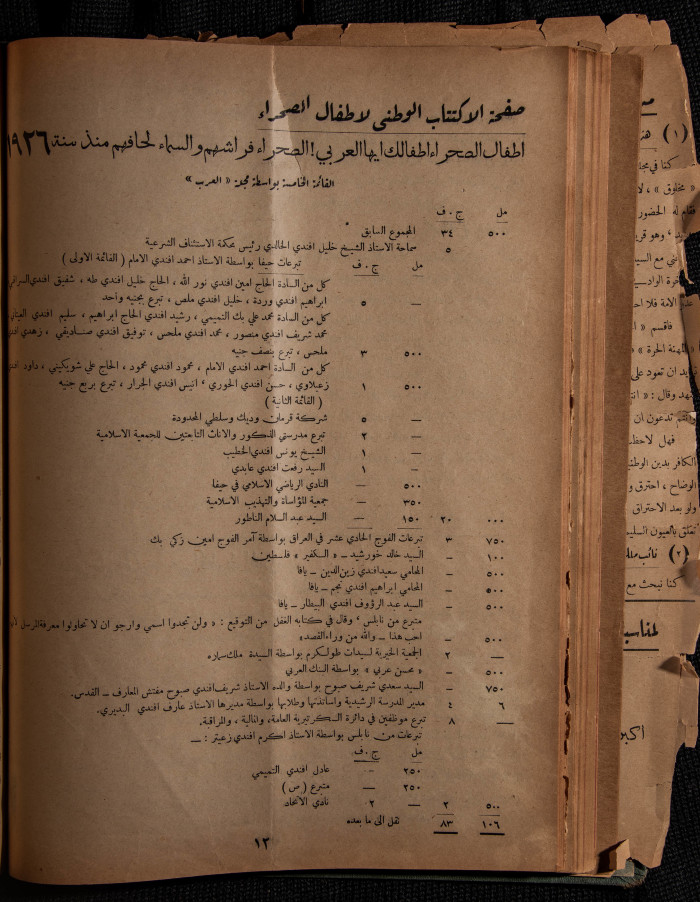 صفحة الاكتتاب الوطني لاطفال الصحراء
اطفال الصحراء اطفالك ايها العربي! الصحراء فراشهم والسماء لحافهم منذ سنة ١٩٢٦
القائمة الخامسة بواسطة مجلة «العرب»
مل ج.ف
٥٠٠ ٣٤ المجموع السابق
٥ سماحة الاستاذ الشيخ خليل افندي الخالدي رئيس محكمة الاستئناف الشرعية
تبرعات حيفا بواسطة الاستاذ احمد افندي الامام (القائمة الاولى)
مل ج.ف
كل من السادة الحاج امين افندي نور الله، الحاج خليل افندي طه، شفيق افندي
ابراهيم افندي وردة، خليل افندي ملص، تبرع بجنيه واحد ٥ —
كل من السادة محمد علي بك التميمي، رشيد افندي الحاج ابراهيم، سليم افندي
محمد شريف افندي منصور، محمد افندي ملحس، توفيق افندي صناديقي، زهدي
ملحس، تبرع بنصف جنيه ٣ ٥٠٠
كل من السادة احمد افندي الامام، محمود افندي محمود، الحاج علي شويكيني، داود
زعبلاوي، حسن افندي الخوري، انيس افندي الجرار، تبرع بربع جنيه ١ ٥٠٠
(القائمة الثانية)
شركة قرمان وديك وسلطي المحدودة ٥ —
تبرع مدرستي الذكور والاناث التابعتين للجمعية الاسلامية ٢ —
الشيخ يونس افندي الخطيب ١ —
السيد رفعت افندي عابدي ١ —
النادي الرياضي الاسلامي في حيفا — ٥٠٠
جمعية المؤاساة والتهذيب الاسلامية — ٣٥٠
السيد عبد السلام الناطور — ١٥٠ ٢٠ ٠٠٠
تبرعات الفوج الحادي عشر في العراق بواسطة آمر الفوج امين زكي بك ٣ ٧٥٠
السيد خالد خورشيد — «الكفير» فلسطين — ١٠٠
المحامي سعيد افندي زين الدين — يافا — ٥٠٠
المحامي ابراهيم افندي نجم — يافا — ٥٠٠
السيد عبد الرؤوف افندي البيطار — يافا — ٥٠٠
متبرع من نابلس، وقال في كتابه الغفل من التوقيع: «ولن تجدوا اسمي وارجو ان لا تحاولوا معرفة المرسل
احب هذا — والله من وراء القصد» — ٥٠٠
الجمعية الخيرية لسيدات طولكرم بواسطة السيدة ملك سماره ٢ —
«محسن عربي» بواسطة البنك العربي — ٥٠٠
السيد سعدي شريف صبوح بواسطة والده الاستاذ شريف افندي صبوح مفتش المعارف — القدس. — ٧٥٠
مدير المدرسة الرشيدية واساتذتها وطلابها بواسطة مديرها الاستاذ عارف افندي البديري. ٤ ٦
تبرع موظفين في دائرة السكرتيرية العامة، والمالية، والمراقبة. ٨ —
تبرعات من نابلس بواسطة الاستاذ اكرم افندي زعيتر: —
مل ج.ف
عادل افندي التميمي — ٢٥٠
متبرع (س) — ٢٥٠
نادي الاتحاد ٢ — ٢ ٥٠٠
نقل الى ما بعده ٨٣ ١٠٦
١٣
(١)
كنا في
« مخلوق »
الحضور
(٢)
كنا نبحث مع